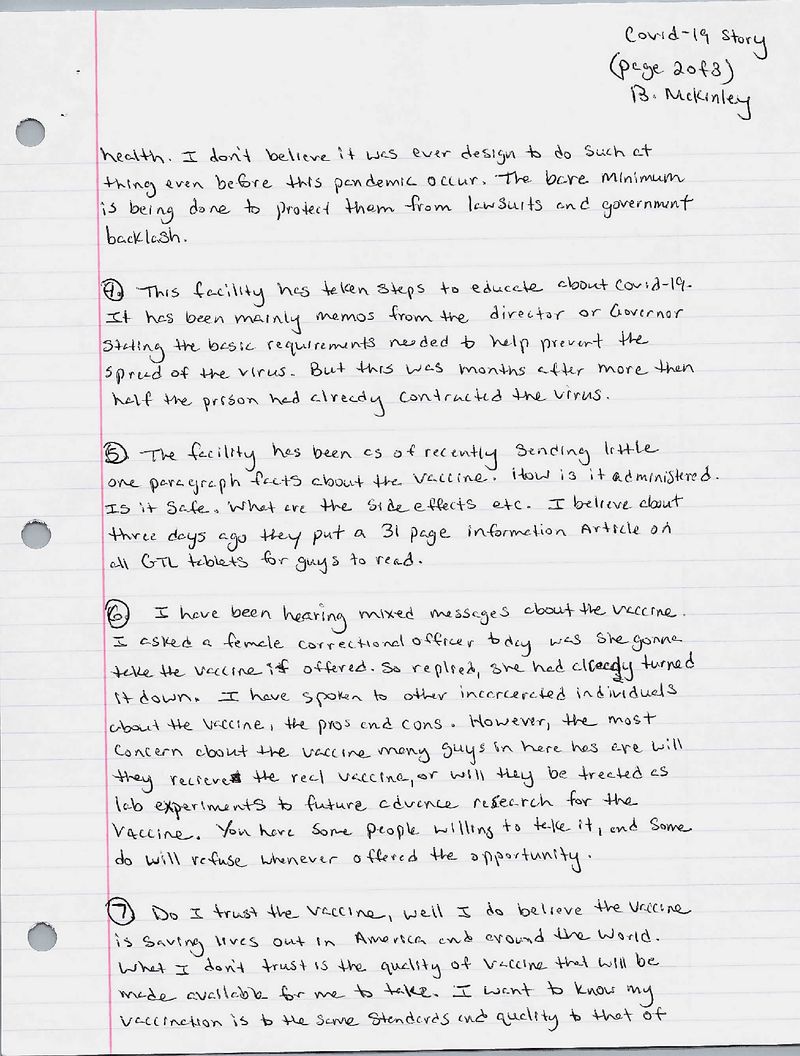 Covid-19 Story
(page 2 of 3)
B. McKinley
health. I don't believe it was ever design to do such at
thing even before this pandemic occur. The bare minimum
is being done to protect them from lawsuits and government
backlash.
4. This facility has taken steps to educate about Covid-19.
It has been mainly memos from the director or Governor
stating the basic requirements needed to help prevent the
spread of the virus. But this was months after more then
half the prison had already contracted the virus.
5. The facility has been as of recently sending little
one paragraph facts about the vaccine. How is it administered.
Is it safe. What are the side effects etc. I believe about
three days ago they put a 31 page information Article on
all GTL tablets for guys to read.
6. I have been hearing mixed messages about the vaccine.
I asked a female correctional officer today was she gonna
take the vaccine if offered. So replied, she had already turned
it down. I have spoken to other incarcerated individuals
about the vaccine, the pros and cons. However, the most
concern about the vaccine many guys in here has are will
they recieve the real vaccine, or will they be treated as
lab experiments to future advance research for the
vaccine. You have some people willing to take it, and some
do will refuse whenever offered the opportunity.
7 Do I trust the vaccine, well I do believe the vaccine
is saving lives out in America and around the world.
What I don't trust is the quality of vaccine that will be
made available for me to take. I want to know my
vaccination is to the same standards and quality to that of